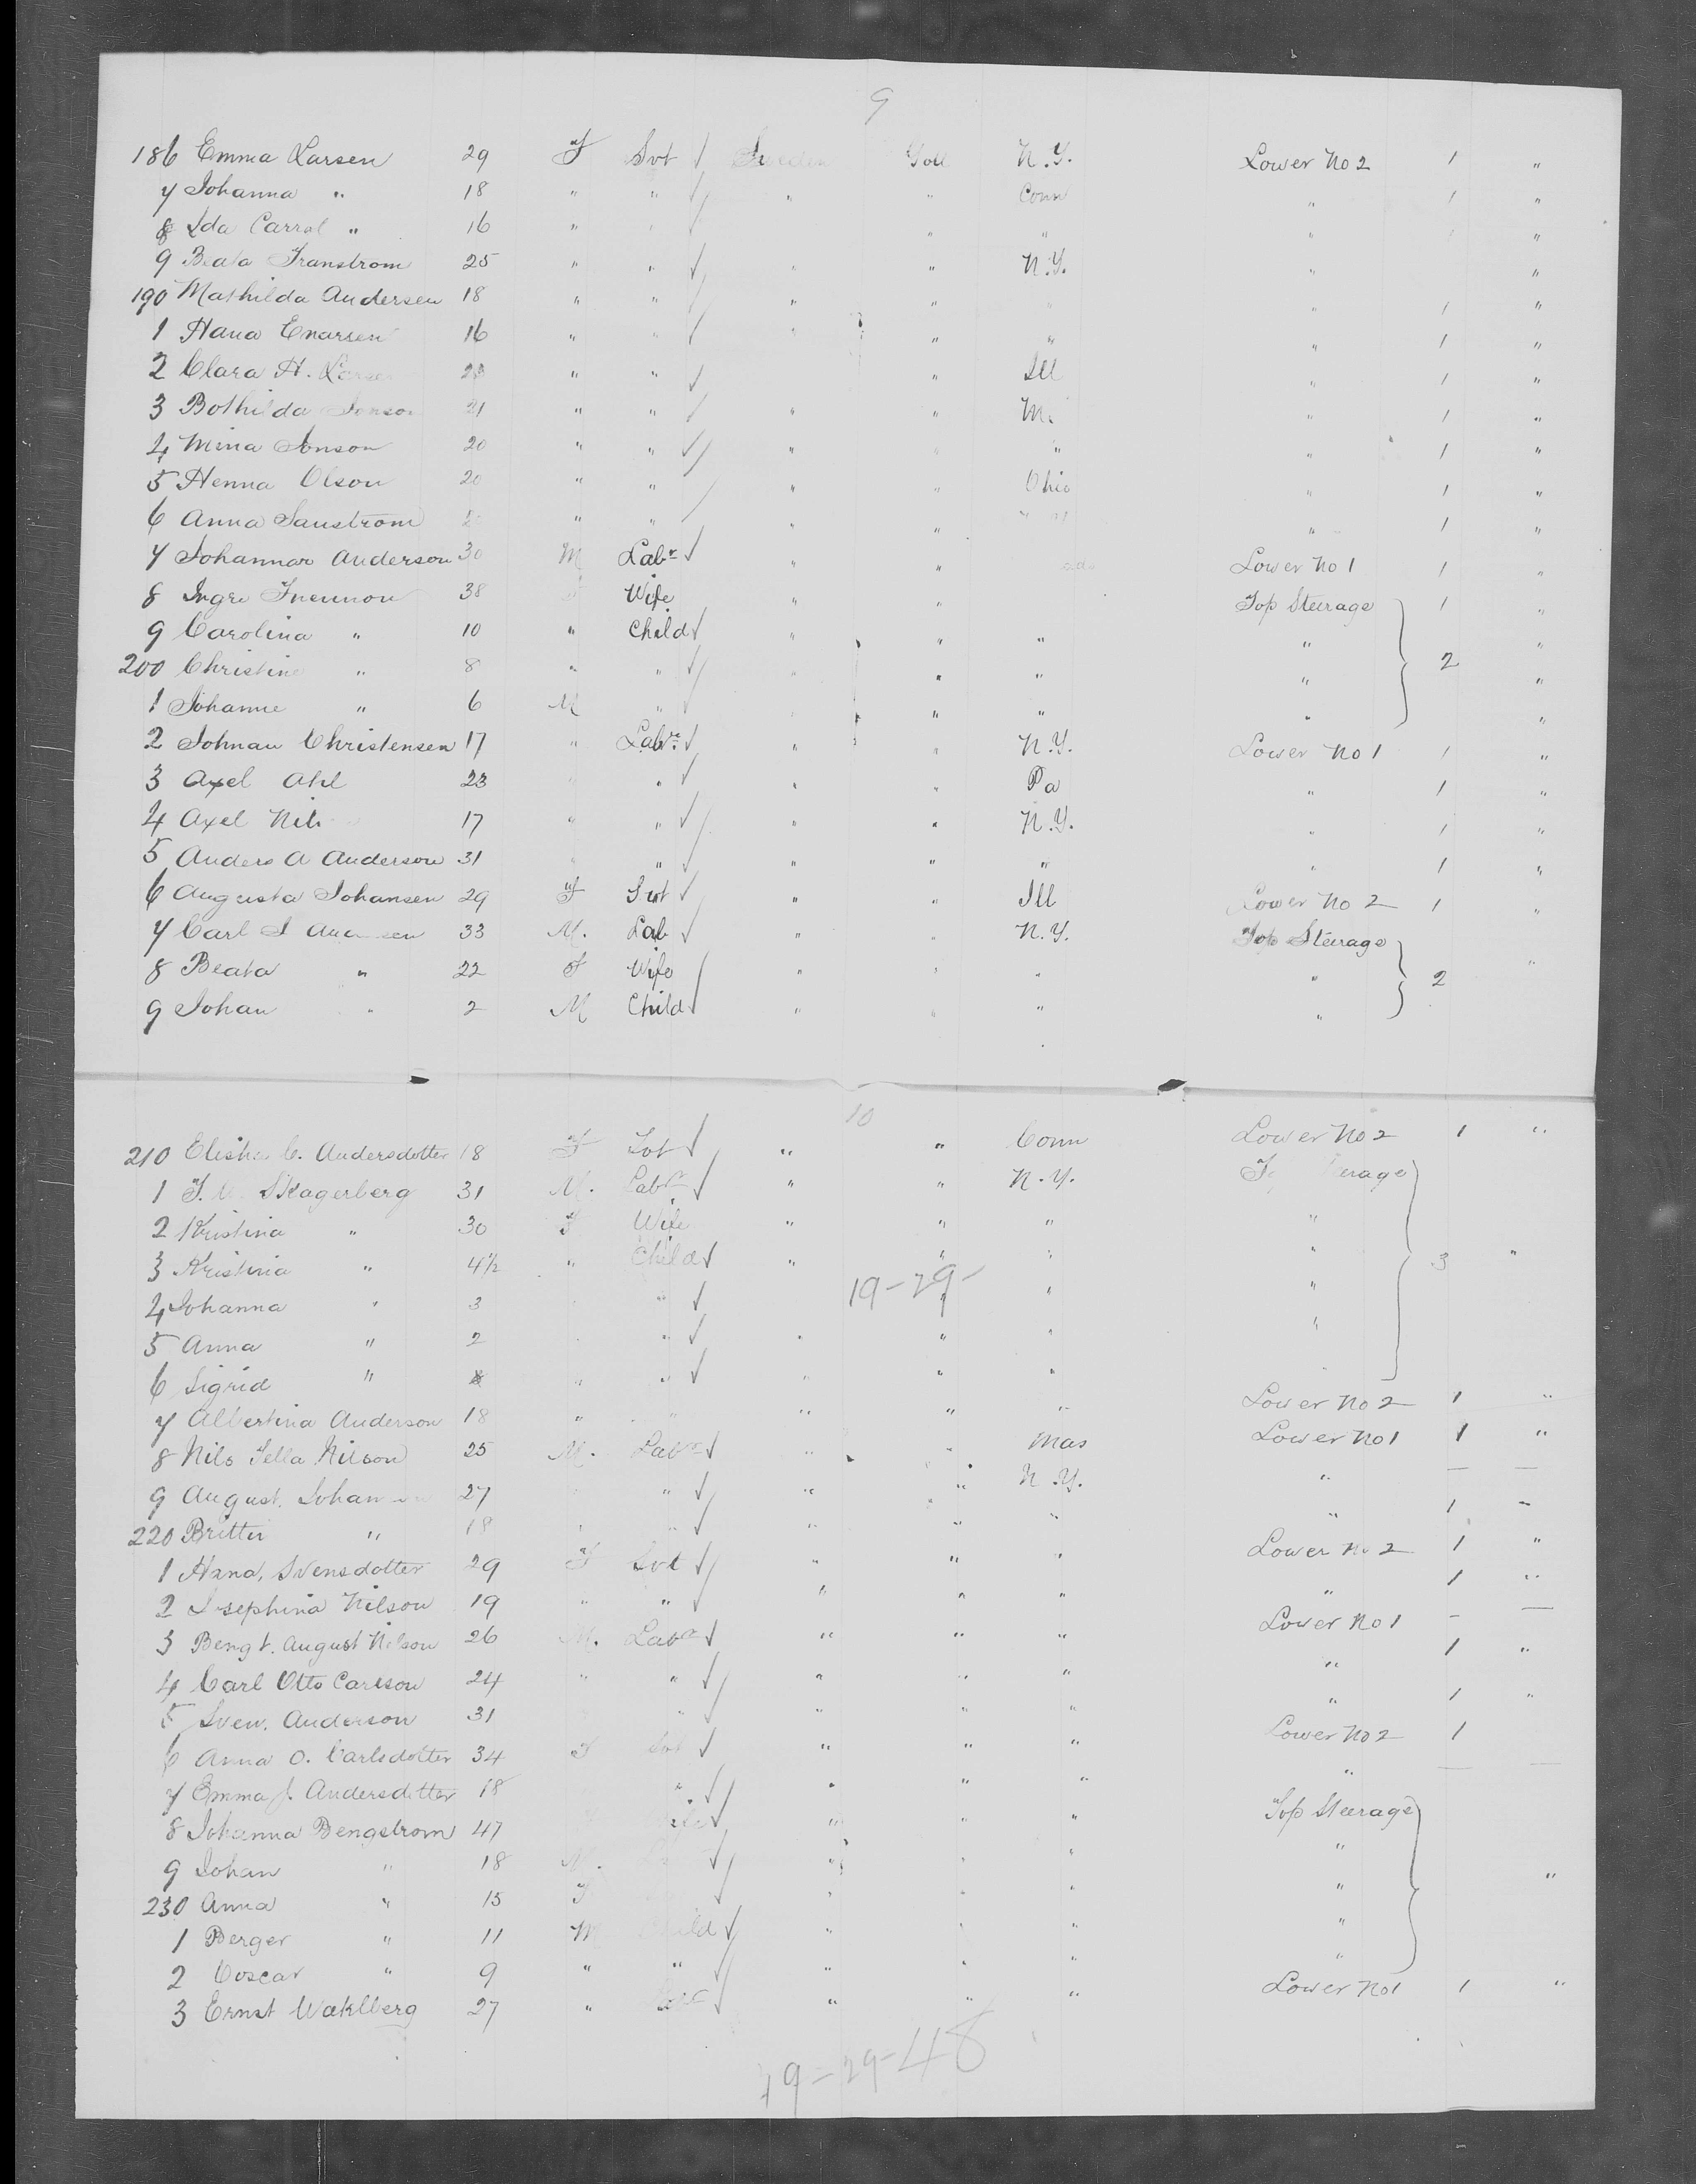 9
186 Emma Larsen 29 F Svt ✓ Sweden Goll N.Y. Lower No 2 1 "
7 Johanna " 18 " " ✓ " " Conn " 1 "
8 Ida Carral " 16 " " ✓ " " " "
9 Beata Franstrom 25 " " ✓ " " N.Y. " "
190 Mathilda Andersen 18 " " ✓ " " " " 1 "
1 Hana Enarsen 16 " " ✓ " " " " 1 "
2 Clara H. " " ✓ " Ill " 1 "
3 Bothilda Jonson 21 " " ✓ " " " 1 "
4 Mina Jonson 20 " " ✓ " " " " 1 "
5 Henna Olson 20 " " ✓ " " Ohio " 1 "
6 Anna Sanstrom " " ✓ " " " 1 "
7 Johannar Anderson 30 M Labr ✓ " " Lower No 1 1 "
8 Ingre 38 F Wife " " Top Steerage 1 "
9 Carolina " 10 " Child ✓ " " " " "
200 Christine " 8 " " ✓ " " " " 2 "
1 Johanne " 6 M " ✓ " " " " "
2 Johnan Christensen 17 " Labr ✓ " " N.Y. Lower No 1 1 "
3 Axel Ahl 23 " " ✓ " " Pa " 1 "
4 Axel 17 " " ✓ " " N.Y. " 1 "
5 Anders A Anderson 31 " " ✓ " " " " 1 "
6 Augusta Johansen 29 F Svt ✓ " " Ill Lower No 2 1 "
7 Carl 33 M. Lab ✓ " " N.Y. Top Steerage
8 Beata " 22 F Wife " " " " 2 "
9 Johan " 2 M Child ✓ " " " "
10
210 C. Andersdotter 18 F Svt ✓ " " Conn Lower No 2 1 "
1 Skagerberg 31 M. Labr ✓ " " N.Y.
2 Kristina " 30 F Wife " " " "
3 Kristina " 4½ " Child ✓ " " " " 3 "
19-29-
4 Johanna " 3 " " ✓ " " "
5 Anna " 2 " " ✓ " " " "
6 Sigrid " " " ✓ " " " "
7 Albertina Anderson 18 " " " " " Lower No 2 1 "
8 Nils Tella Nilson 25 M. Labr ✓ " " Mas Lower No 1 1 "
9 August. 27 " " ✓ " " N.Y. " — —
220 Britter " 18 " " ✓ " " " " 1 "
1 Hana, Svensdotter 29 F Svt ✓ " " " Lower No 2 1 "
2 Josephina Nilson 19 " " ✓ " " " " 1 "
3 Bengt. August Nilson 26 M. Labr ✓ " " " Lower No 1 — —
4 Carl Otto Carlson 24 " " ✓ " " " " 1 "
5 Sven. Anderson 31 " ✓ " " " " 1 "
6 Anna O. Carlsdotter 34 F Svt ✓ " " " Lower No 2 1
7 Emma J. Andersdotter 18 " ✓ " " " " — —
8 Johanna Bengstrom 47 ✓ " " " Top Steerage
9 Johan " 18 M. ✓ " " " "
230 Anna " 15 F ✓ " " " " "
1 Berger " 11 M Child ✓ " " " "
2 Coscar " 9 " " ✓ " " " "
3 Ernst Wahlberg 27 " Labr ✓ " " " Lower No 1 1 "
19-29-48